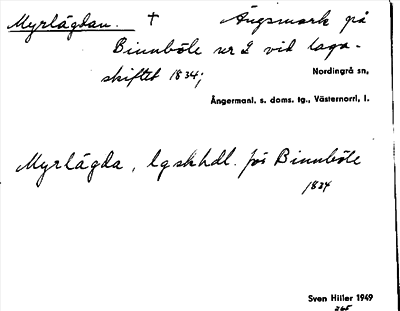 Myrlägdan. † Ängsmark på
Binnböle nr 2 vid laga-
skiftet 1834;
Nordingrå sn,
Ångermanl. s. doms. tg., Västernorrl. l.
Myrlägda, lgskhdl.för Binnböle
1834
Sven Hiller 1949
265